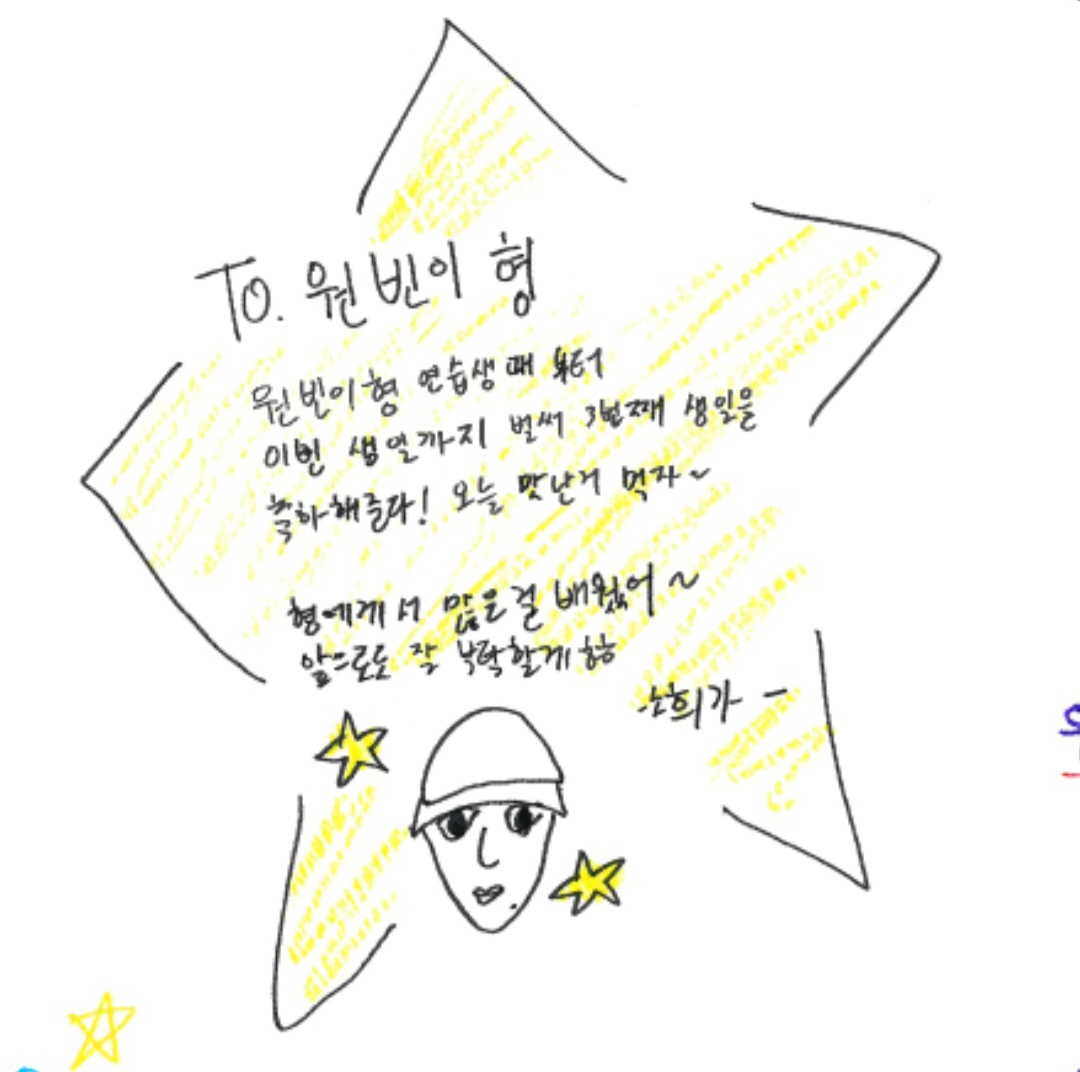 To. 원빈이 형
원빈이형 연습생때 부터
이번 생일까지 벌써 3번째 생일을
축하해준다! 오늘 맛난거 먹자~
형에게서 많은걸 배웠어~
앞으로도 잘 부탁할게 ㅎㅎ
-소희가-